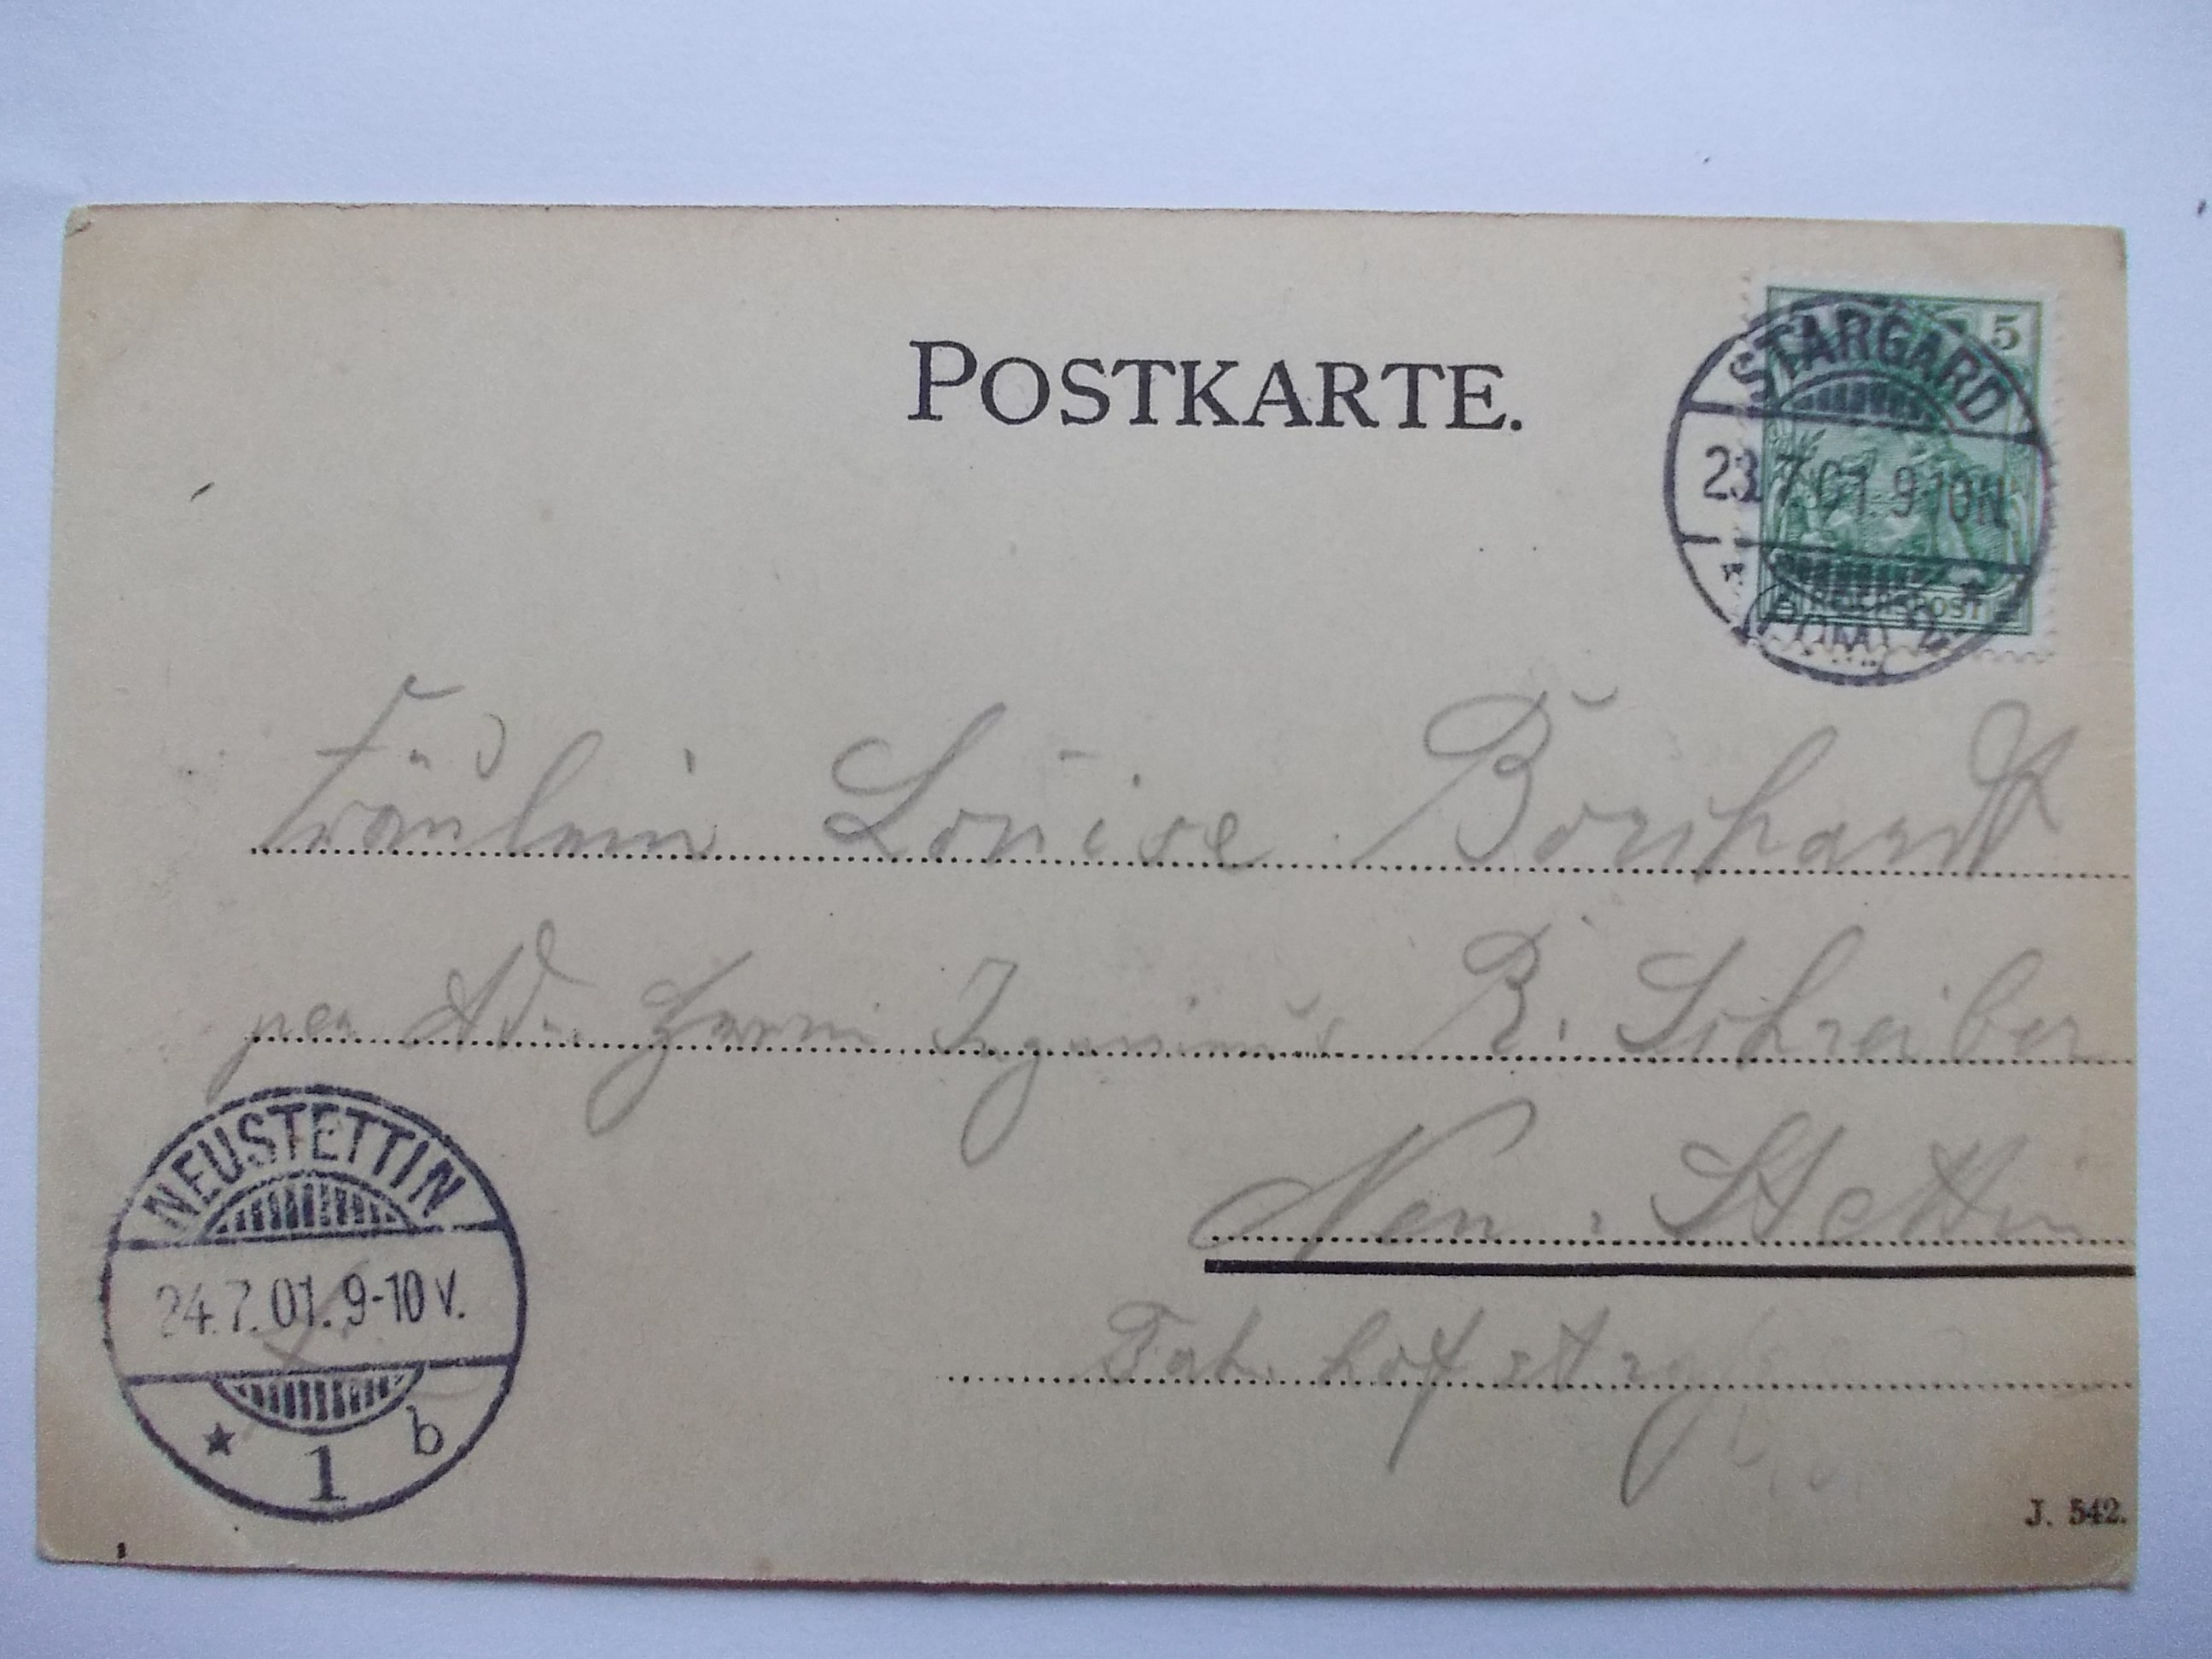 POSTKARTE.
5
STARGARD
23.7.01.9-10N.
REICHSPOST
* (POM) 2 *
Fräulein Louise Borchardt
per Adr. Herrn Ingenieur R. Schreiber
Neu-Stettin
Bahnhofstr
NEUSTETTIN
24.7.01.9-10V.
* 1 b
J. 542.